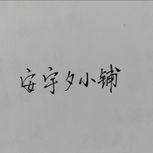 安宇夕小铺